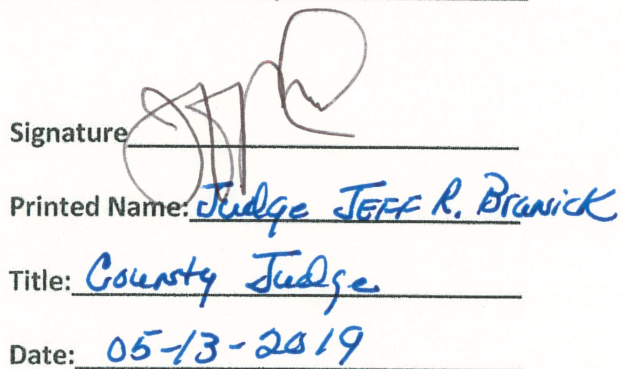 Signature
Printed Name: Judge JEFF R. Branick
Title: County Judge
Date: 05-13-2019